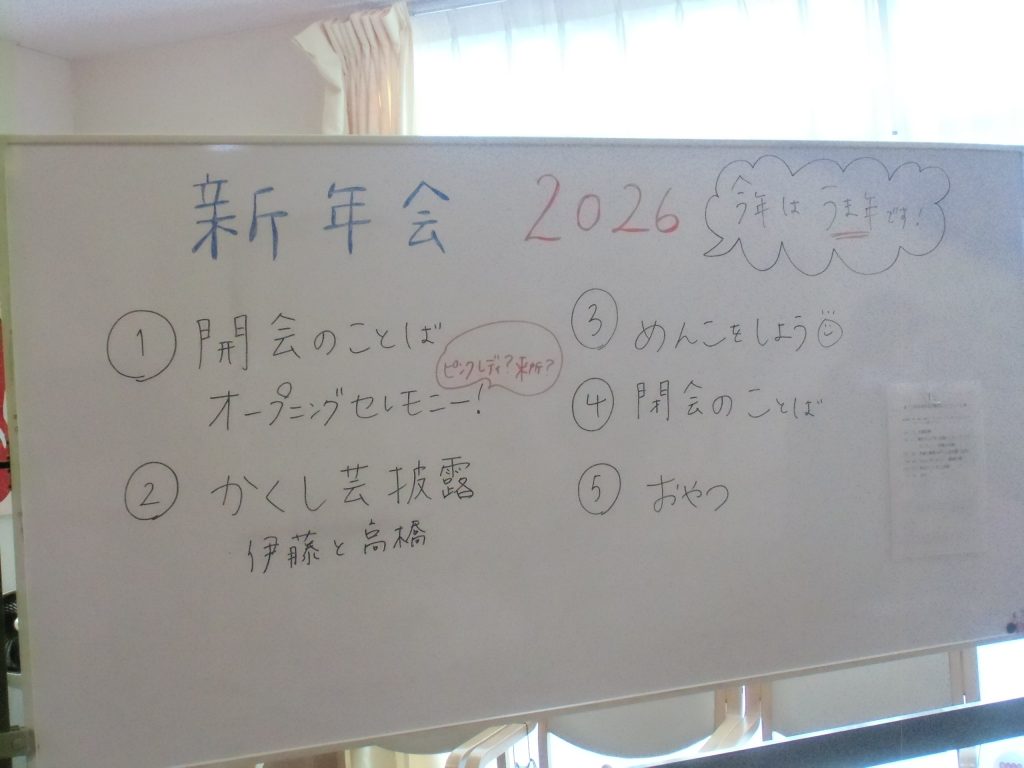 新年会 2026
今年は うま年です!
① 開会のことば
オープニングセレモニー!
ピンクレディ?来所?
② かくし芸披露
伊藤と高橋
③ めんこをしよう
④ 閉会のことば
⑤ おやつ